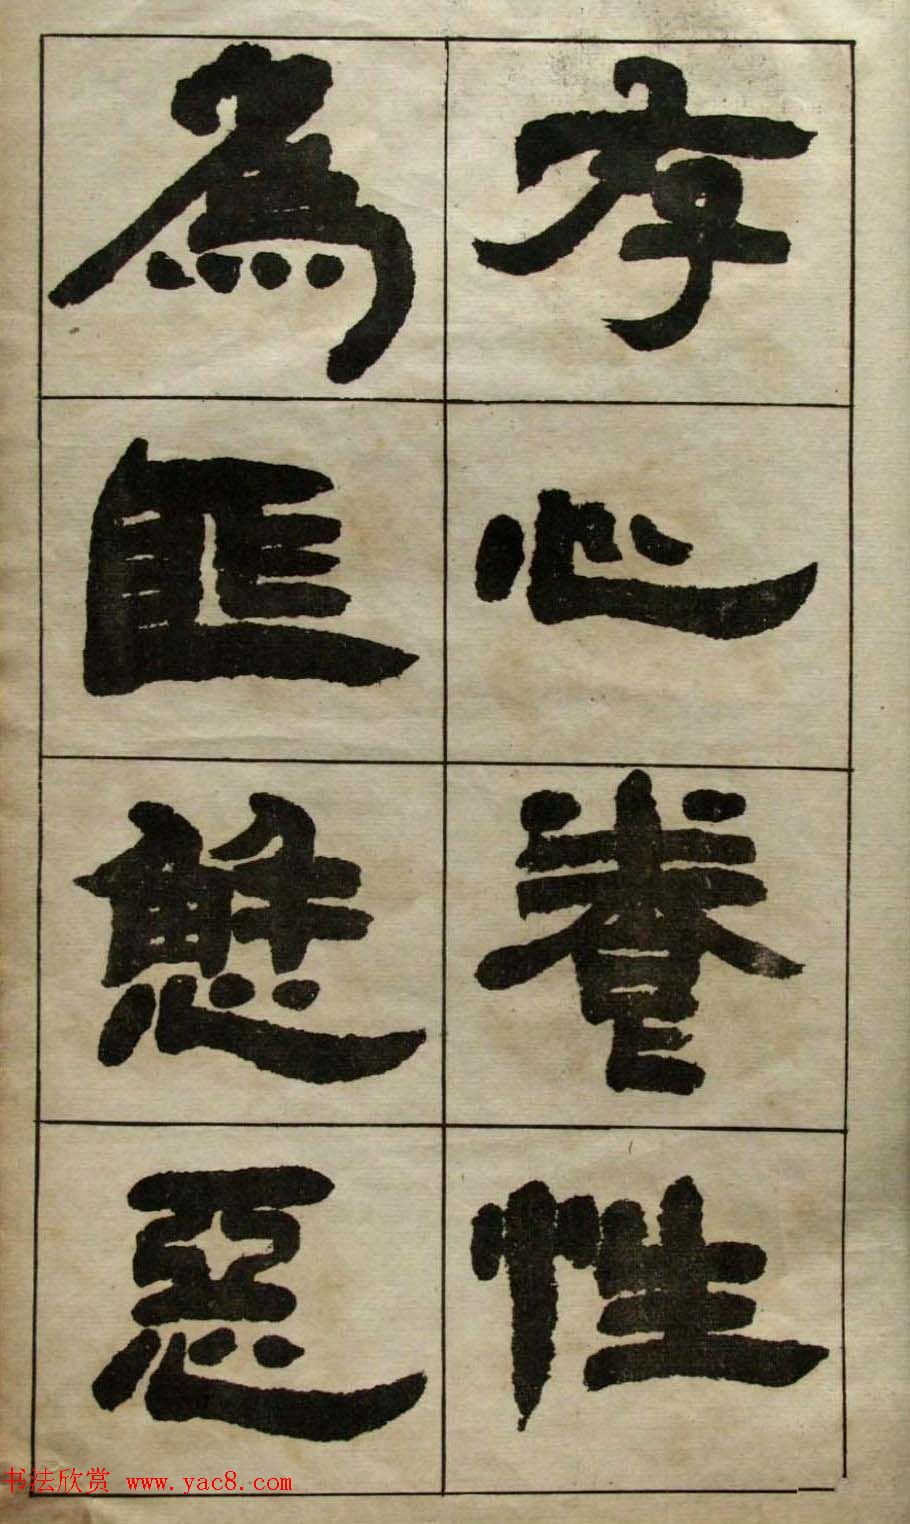 存心養性
為匪懈惡
书法欣赏 www.yac8.com